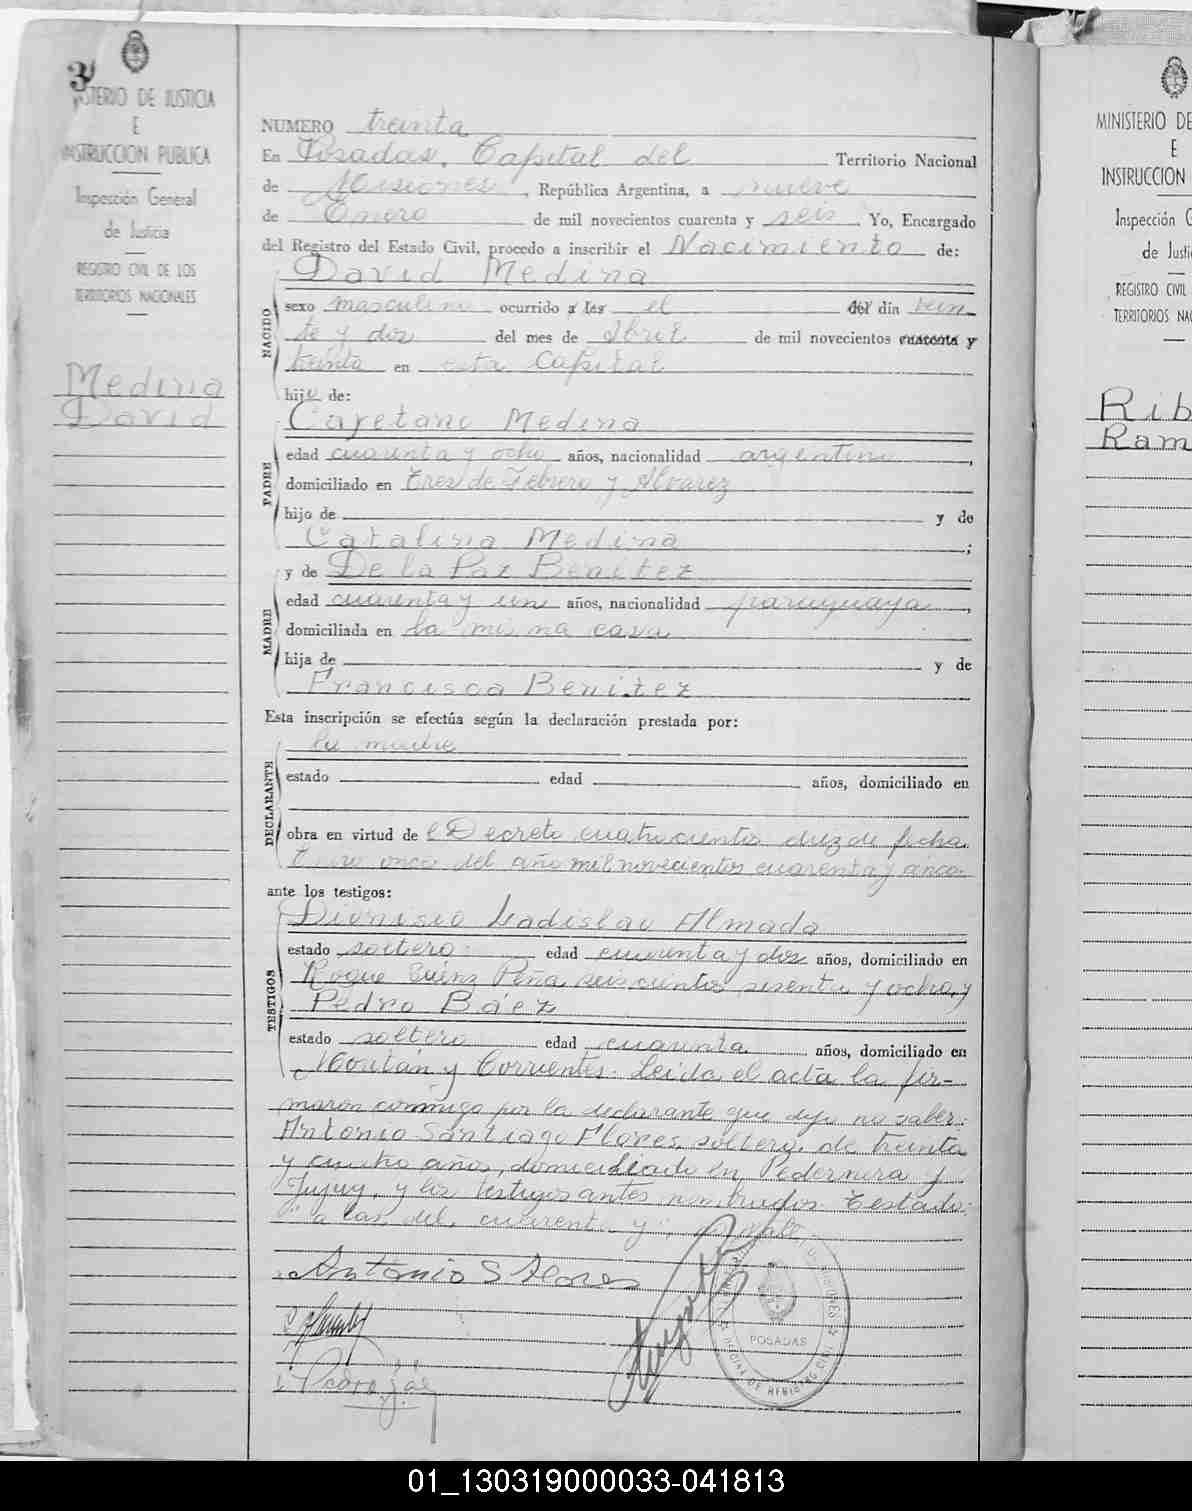 3
MINISTERIO DE JUSTICIA
E
INSTRUCCION PUBLICA
Inspección General
de Justicia
REGISTRO CIVIL DE LOS
TERRITORIOS NACIONALES
Medina
David
NUMERO treinta
En Posadas, Capital del Territorio Nacional
de Misiones, República Argentina, a nueve
de Enero de mil novecientos cuarenta y seis. Yo, Encargado
del Registro del Estado Civil, procedo a inscribir el Nacimiento de:
David Medina
NACIDO
sexo masculino ocurrido a las el del día vein-
te y dos del mes de Abril de mil novecientos cuarenta y
treinta en esta Capital
hijo de:
Cayetano Medina
PADRE
edad cuarenta y ocho años, nacionalidad argentino,
domiciliado en Tres de Febrero y Alvarez
hijo de y de
Catalina Medina;
y de De la Paz Benitez
MADRE
edad cuarenta y un años, nacionalidad paraguaya,
domiciliada en la misma casa
hija de y de
Francisca Benitez
Esta inscripción se efectúa según la declaración prestada por:
la madre
DECLARANTE
estado edad años, domiciliado en
obra en virtud de el Decreto cuatrocientos diez de fecha
Enero once del año mil novecientos cuarenta y cinco
ante los testigos:
Dionisio Ladislao Almada
TESTIGOS
estado soltero edad cuarenta y dos años, domiciliado en
Roque Saenz Peña seiscientos sesenta y ocho, y
Pedro Báez
estado soltero edad cuarenta años, domiciliado en
Moritán y Corrientes. Leida el acta la fir-
maron conmigo por la declarante que dijo no saber:
Antonio Santiago Flores, soltero, de treinta
y cuatro años, domiciliado en Pedernera y
Jujuy, y los testigos antes nombrados. Testado:
"a las del, cuarenta y": no vale.
Antonio S Flores
Pedro Báe
POSADAS
MINISTERIO DE
E
INSTRUCCION
Inspección G
de Justi
REGISTRO CIVIL
TERRITORIOS NA
Rib
Ram
01_130319000033-041813